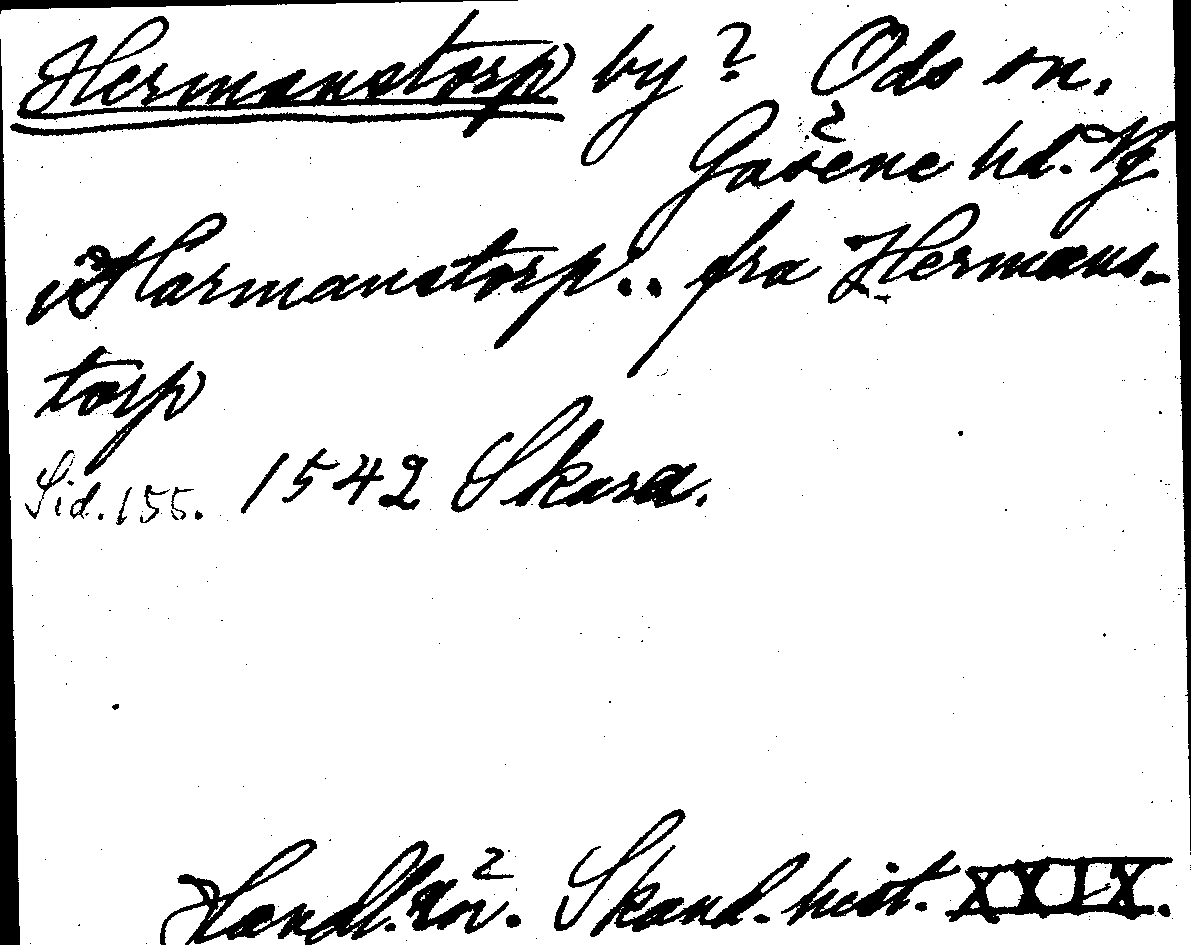 Hermanstorp by? Ods sn.
Gäsene hd. Vg
i Harmanstorp.. fra Hermans-
torp
Sid. 155. 1542 Skara.
Handl. rör. Skand. hist. XXIX.